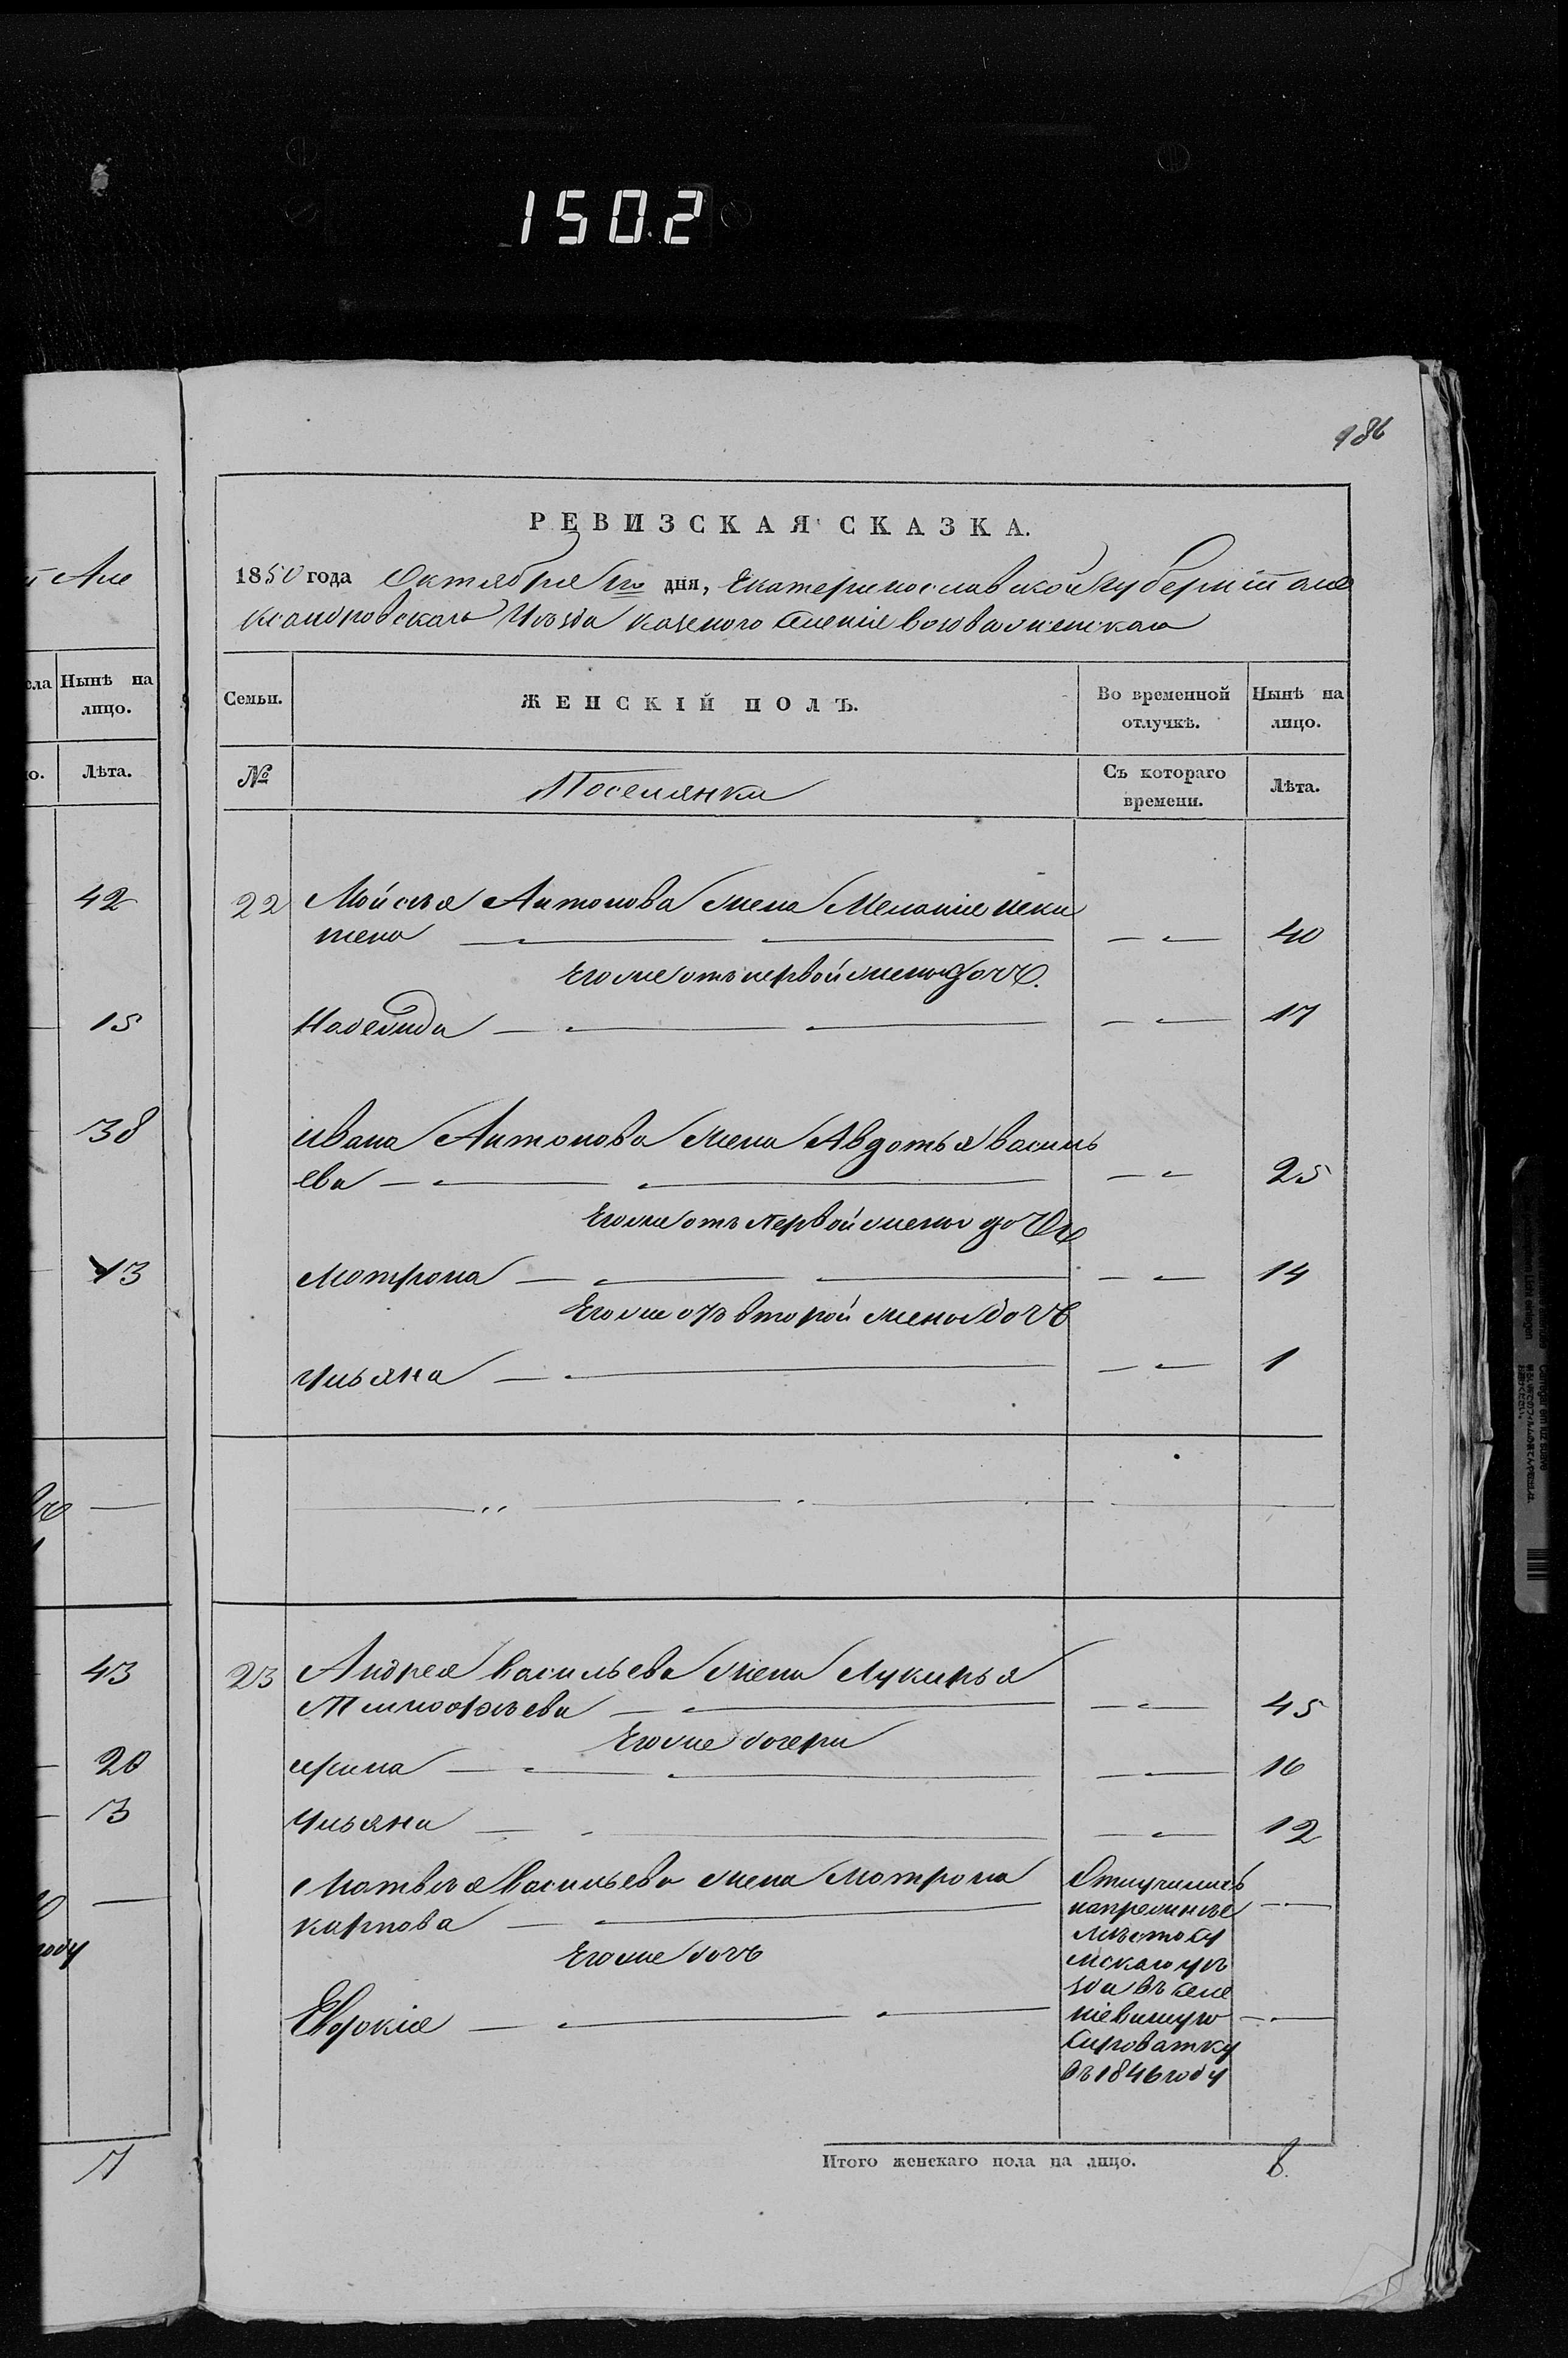 1502
986
РЕВИЗСКАЯ СКАЗКА.
1850 года Октября 1го дня, Екатеринославской губерніи але
ксандровскаго Уѣзда казеного селенія
Семьи.
ЖЕНСКІЙ ПОЛЪ.
Во временной отлучкѣ.
Нынѣ на лицо.
№
Поселянки
Съ котораго времени.
Лѣта.
22 Мойсѣя Антонова жена Меланія ники
тена — — — 40
Его же отъ первой жены дочь.
Надежда — — — 17
ивана Антонова жена Авдотья василь
ева — — — 25
Его же отъ первой жены дочь
мотрона — — — 14
Его же отъ второй жены дочь
Ульяна — — 1
23 Андрея васильева жена Лукирья
Тимофѣева — — 45
Его же дочери
ирина — — — 16
Ульяна — — 12
Матвѣя васильева жена мотрона
карпова — —
Его же дочь
Евдокія — — —
Отлучились
напрежнѣе
мѣсто Су
мскаго уѣ
зда въ селе
ніе
Сыроватку
въ 1846 году
Итого женскаго пола на лицо.
Але
Нынѣ на
лицо.
Лѣта.
42
15
38
13
43
20
3
году
7